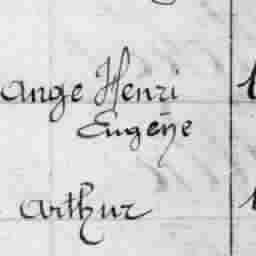 Ange Henri
Eugène
Arthur